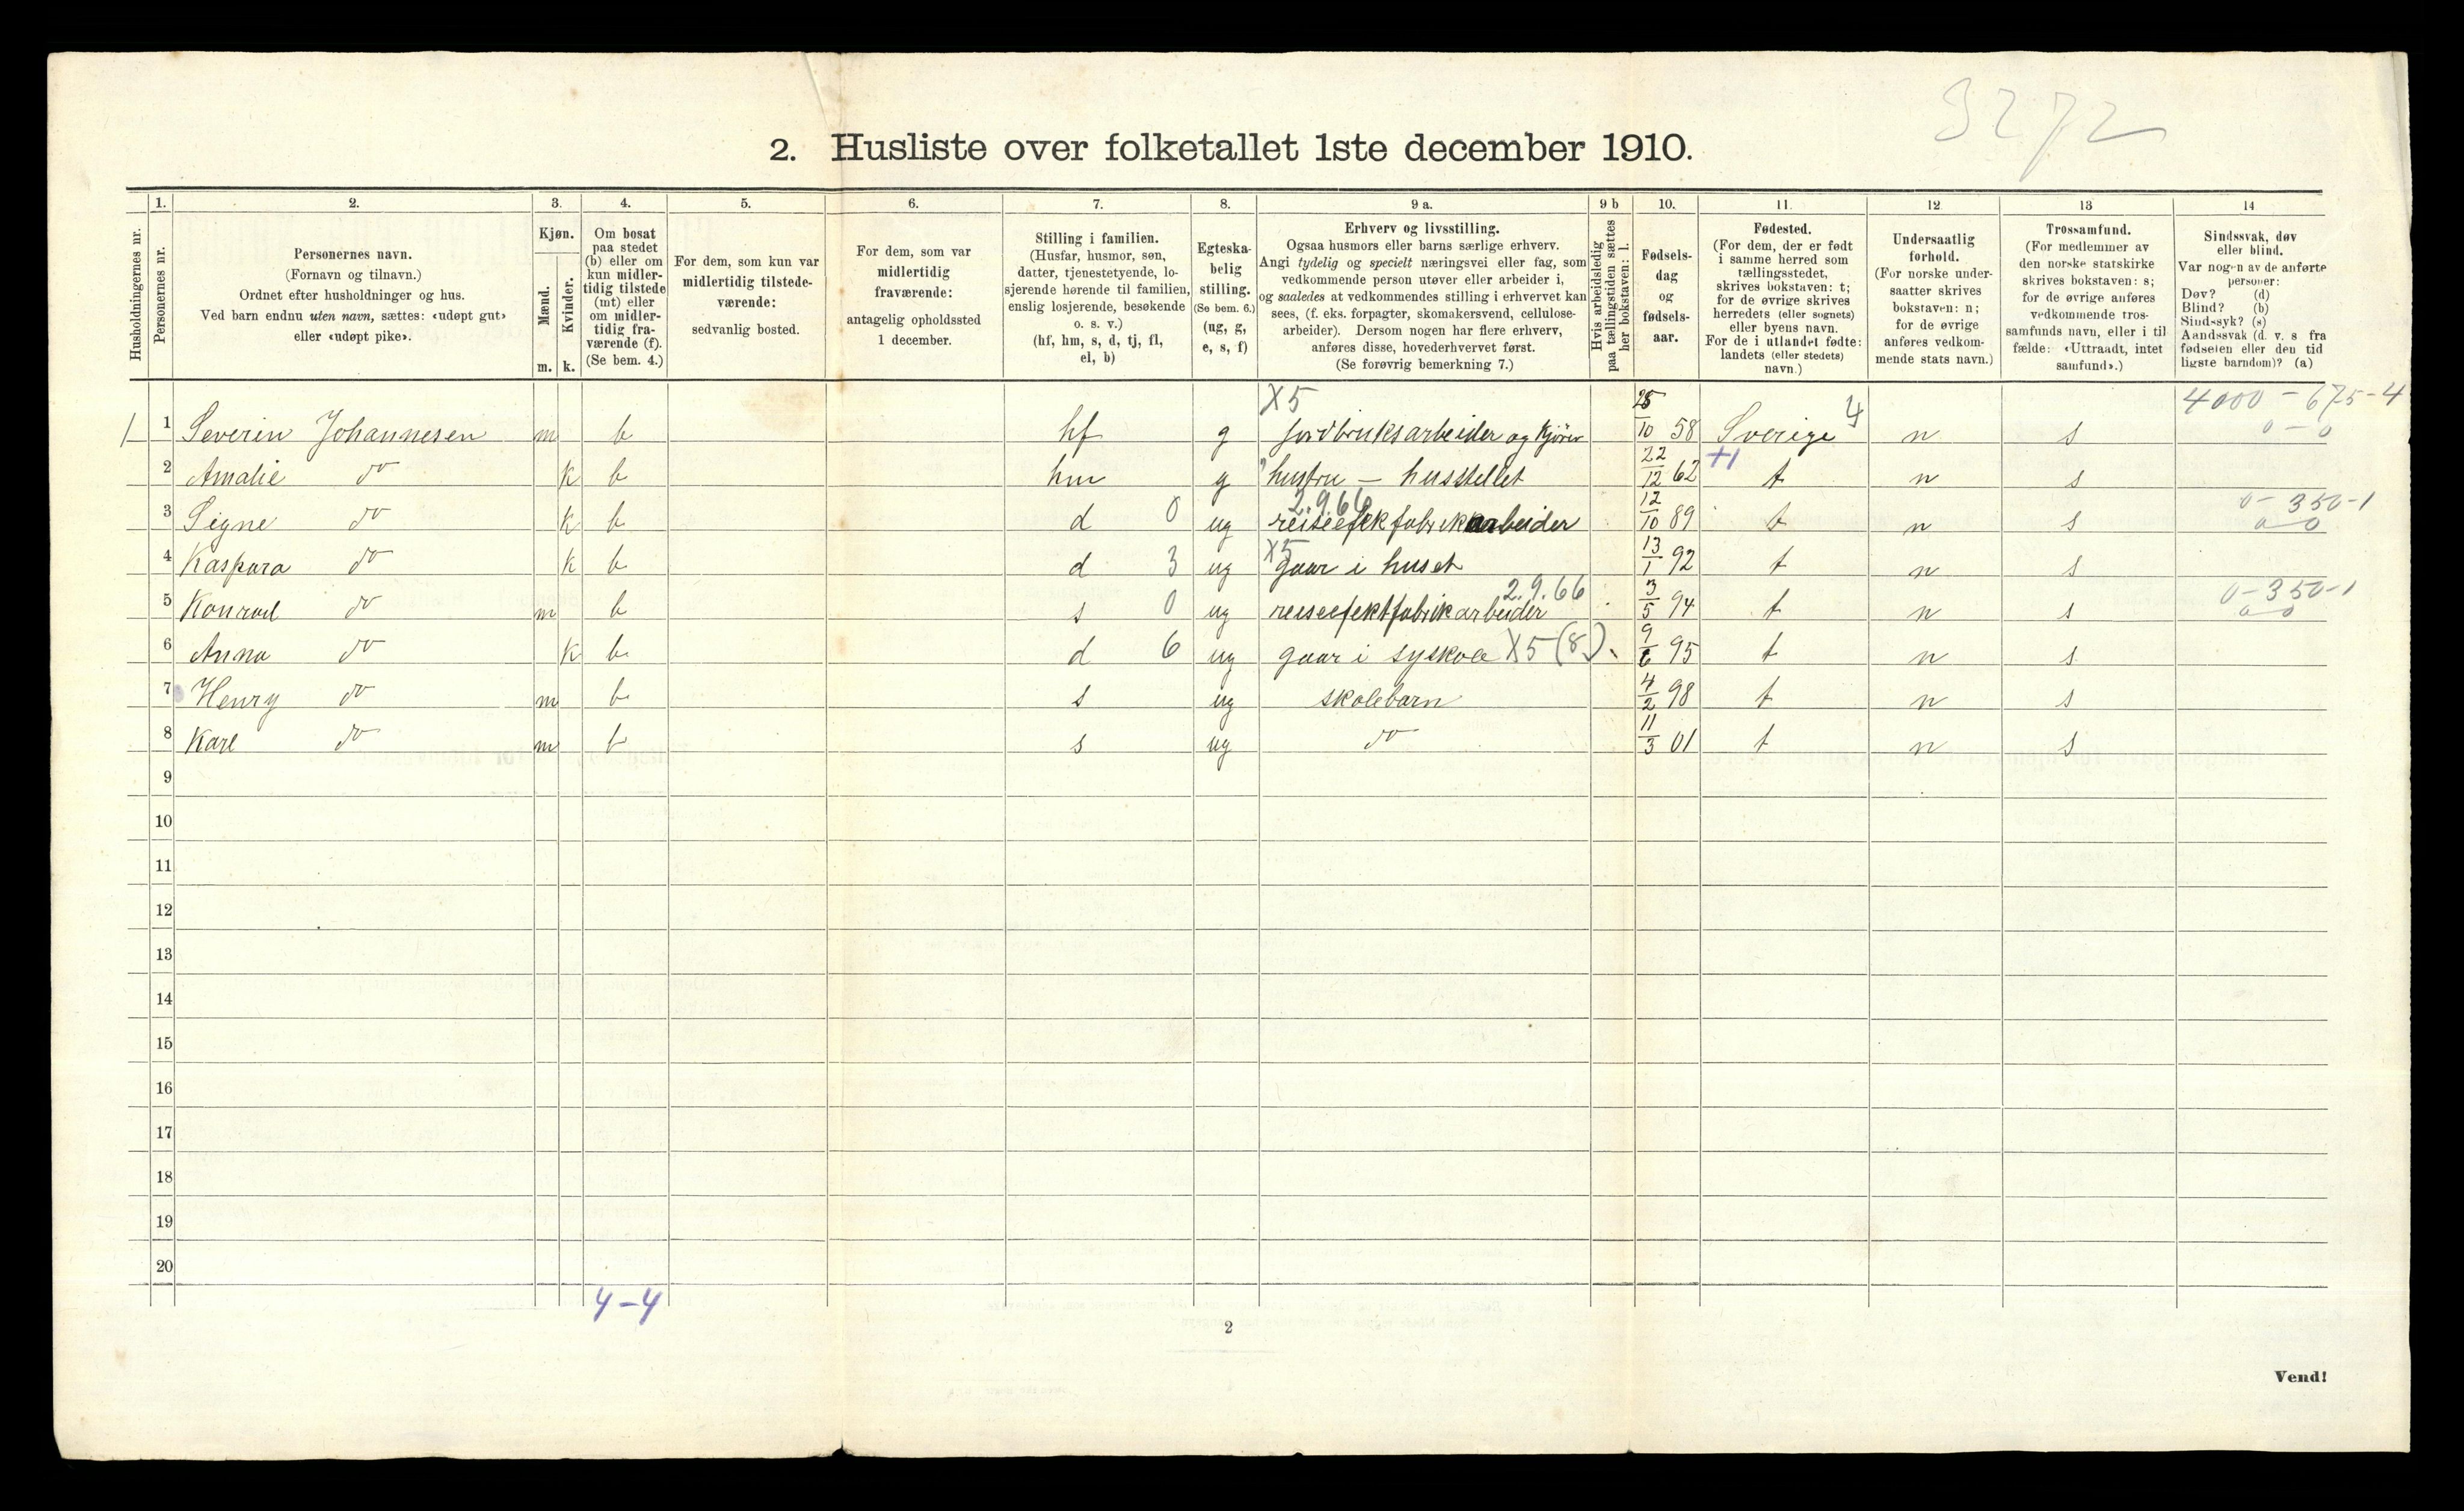 3272
2. Husliste over folketallet 1ste december 1910.
Husholdningernes nr.
1.
Personernes nr.
2.
Personernes navn.
(Fornavn og tilnavn.)
Ordnet efter husholdninger og hus.
Ved barn endnu uten navn, sættes: «udøpt gut»
eller «udøpt pike».
3.
Kjøn.
Mænd.
Kvinder.
m. k.
4.
Om bosat
paa stedet
(b) eller om
kun midler-
tidig tilstede
(mt) eller
om midler-
tidig fra-
værende (f).
(Se bem. 4.)
5.
For dem, som kun var
midlertidig tilstede-
værende:
sedvanlig bosted.
6.
For dem, som var
midlertidig
fraværende:
antagelig opholdssted
1 december.
7.
Stilling i familien.
(Husfar, husmor, søn,
datter, tjenestetyende, lo-
sjerende hørende til familien,
enslig losjerende, besøkende
o. s. v.)
(hf, hm, s, d, tj, fl,
el, b)
8.
Egteska-
belig
stilling.
(Se bem. 6.)
(ug, g,
e, s, f)
9 a.
Erhverv og livsstilling.
Ogsaa husmors eller barns særlige erhverv.
Angi tydelig og specielt næringsvei eller fag, som
vedkommende person utøver eller arbeider i,
og saaledes at vedkommendes stilling i erhvervet kan
sees, (f. eks. forpagter, skomakersvend, cellulose-
arbeider). Dersom nogen har flere erhverv,
anføres disse, hovederhvervet først.
(Se forøvrig bemerkning 7.)
9 b
Hvis arbeidsledig
paa tællingstiden sættes
her bokstaven: l.
10.
Fødsels-
dag
og
fødsels-
aar.
11.
Fødested.
(For dem, der er født
i samme herred som
tællingsstedet,
skrives bokstaven: t;
for de øvrige skrives
herredets (eller sognets)
eller byens navn.
For de i utlandet fødte:
landets (eller stedets)
navn.)
12.
Undersaatlig
forhold.
(For norske under-
saatter skrives
bokstaven: n;
for de øvrige
anføres vedkom-
mende stats navn.)
13
Trossamfund.
(For medlemmer av
den norske statskirke
skrives bokstaven: s;
for de øvrige anføres
vedkommende tros-
samfunds navn, eller i til
fælde: «Uttraadt, intet
samfund».)
14
Sindssvak, døv
eller blind.
Var nogen av de anførte
personer:
Døv? (d)
Blind? (b)
Sindssyk? (s)
Aandssvak (d. v. s fra
fødselen eller den tid
ligste barndom)? (a)
X5 4 4000 - 675-4
1 1 Severin Johannesen m b hf g jordbruksarbeider og Kjörer 25/10 58 Sverige n s 0 - 0
+1
2 Amalie do k b hm g hustru - husstellet 22/12 62 t n s
2.9.66 0-350-1
3 Signe do k b d 0 ug reiseefekfabrikkarbeider 12/10 89 t n s 0 0
X5
4 Kaspara do k b d 3 ug gaar i huset 13/1 92 t n s
2.9.66 0-350-1
5 Konrad do m b s 0 ug reiseefektfabrikarbeider 3/5 94 t n s 0 0
6 Anna do k b d 6 ug gaar i syskole X5 (8) 9/6 95 t n s
7 Henry do m b s ug skolebarn 4/2 98 t n s
8 Karl do m b s ug do 11/3 01 t n s
9
10
11
12
13
14
15
16
17
18
19
20
4-4
2
Vend!